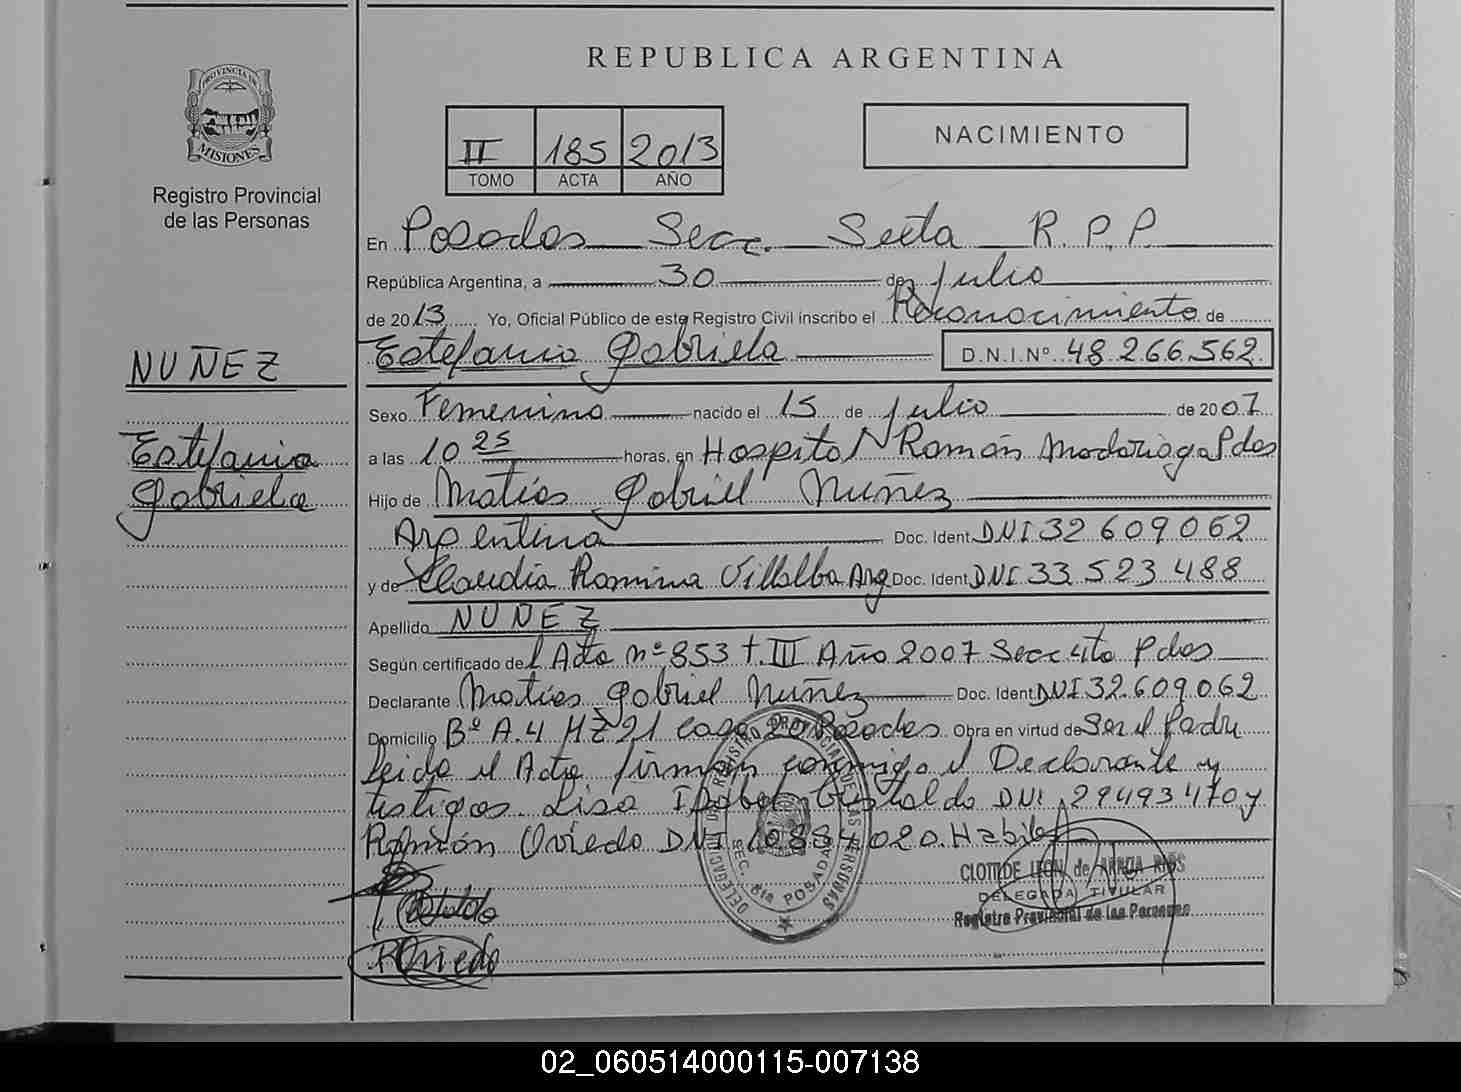 REPUBLICA ARGENTINA
PROVINCIA DE
MISIONES
Registro Provincial
de las Personas
II 185 2013
TOMO ACTA AÑO
NACIMIENTO
En Posadas Secc. Sexta R.P.P.
República Argentina, a 30 de Julio
de 2013 Yo, Oficial Público de este Registro Civil inscribo el Reconocimiento de
NUÑEZ
Estefania Gabriela D.N.I.Nº 48.266.562.
Sexo Femenino nacido el 15 de Julio de 2007
Estefania
Gabriela
a las 10 25 horas, en Hospital Ramón Madariaga Pdas
Hijo de Matias Gabriel Nuñez
Argentina Doc. Ident. DNI 32 609 062
y de Claudia Romina Villalba Arg Doc. Ident. DNI 33 523 488
Apellido NUÑEZ
Según certificado del Acta nº 853 t. III Año 2007 Secc 4ta Pdas
Declarante Matias Gabriel Nuñez Doc. Ident. DNI 32.609.062
Domicilio Bº A.4 Mz 21 casa 20 Posadas. Obra en virtud de Ser el Padre
Leida el Acta firman conmigo el Declarante y
testigos Lisa Isabel Cristaldo DNI 29493470 y
Ramón Oviedo DNI 10834020. Habiles
DELEGACION DE REGISTRO PROVINCIAL DE LAS PERSONAS
SEC. 6ta POSADAS
CLOTILDE LEON de
DELEGADA TITULAR
Registro Provincial de las Personas
ROviedo
02_060514000115-007138